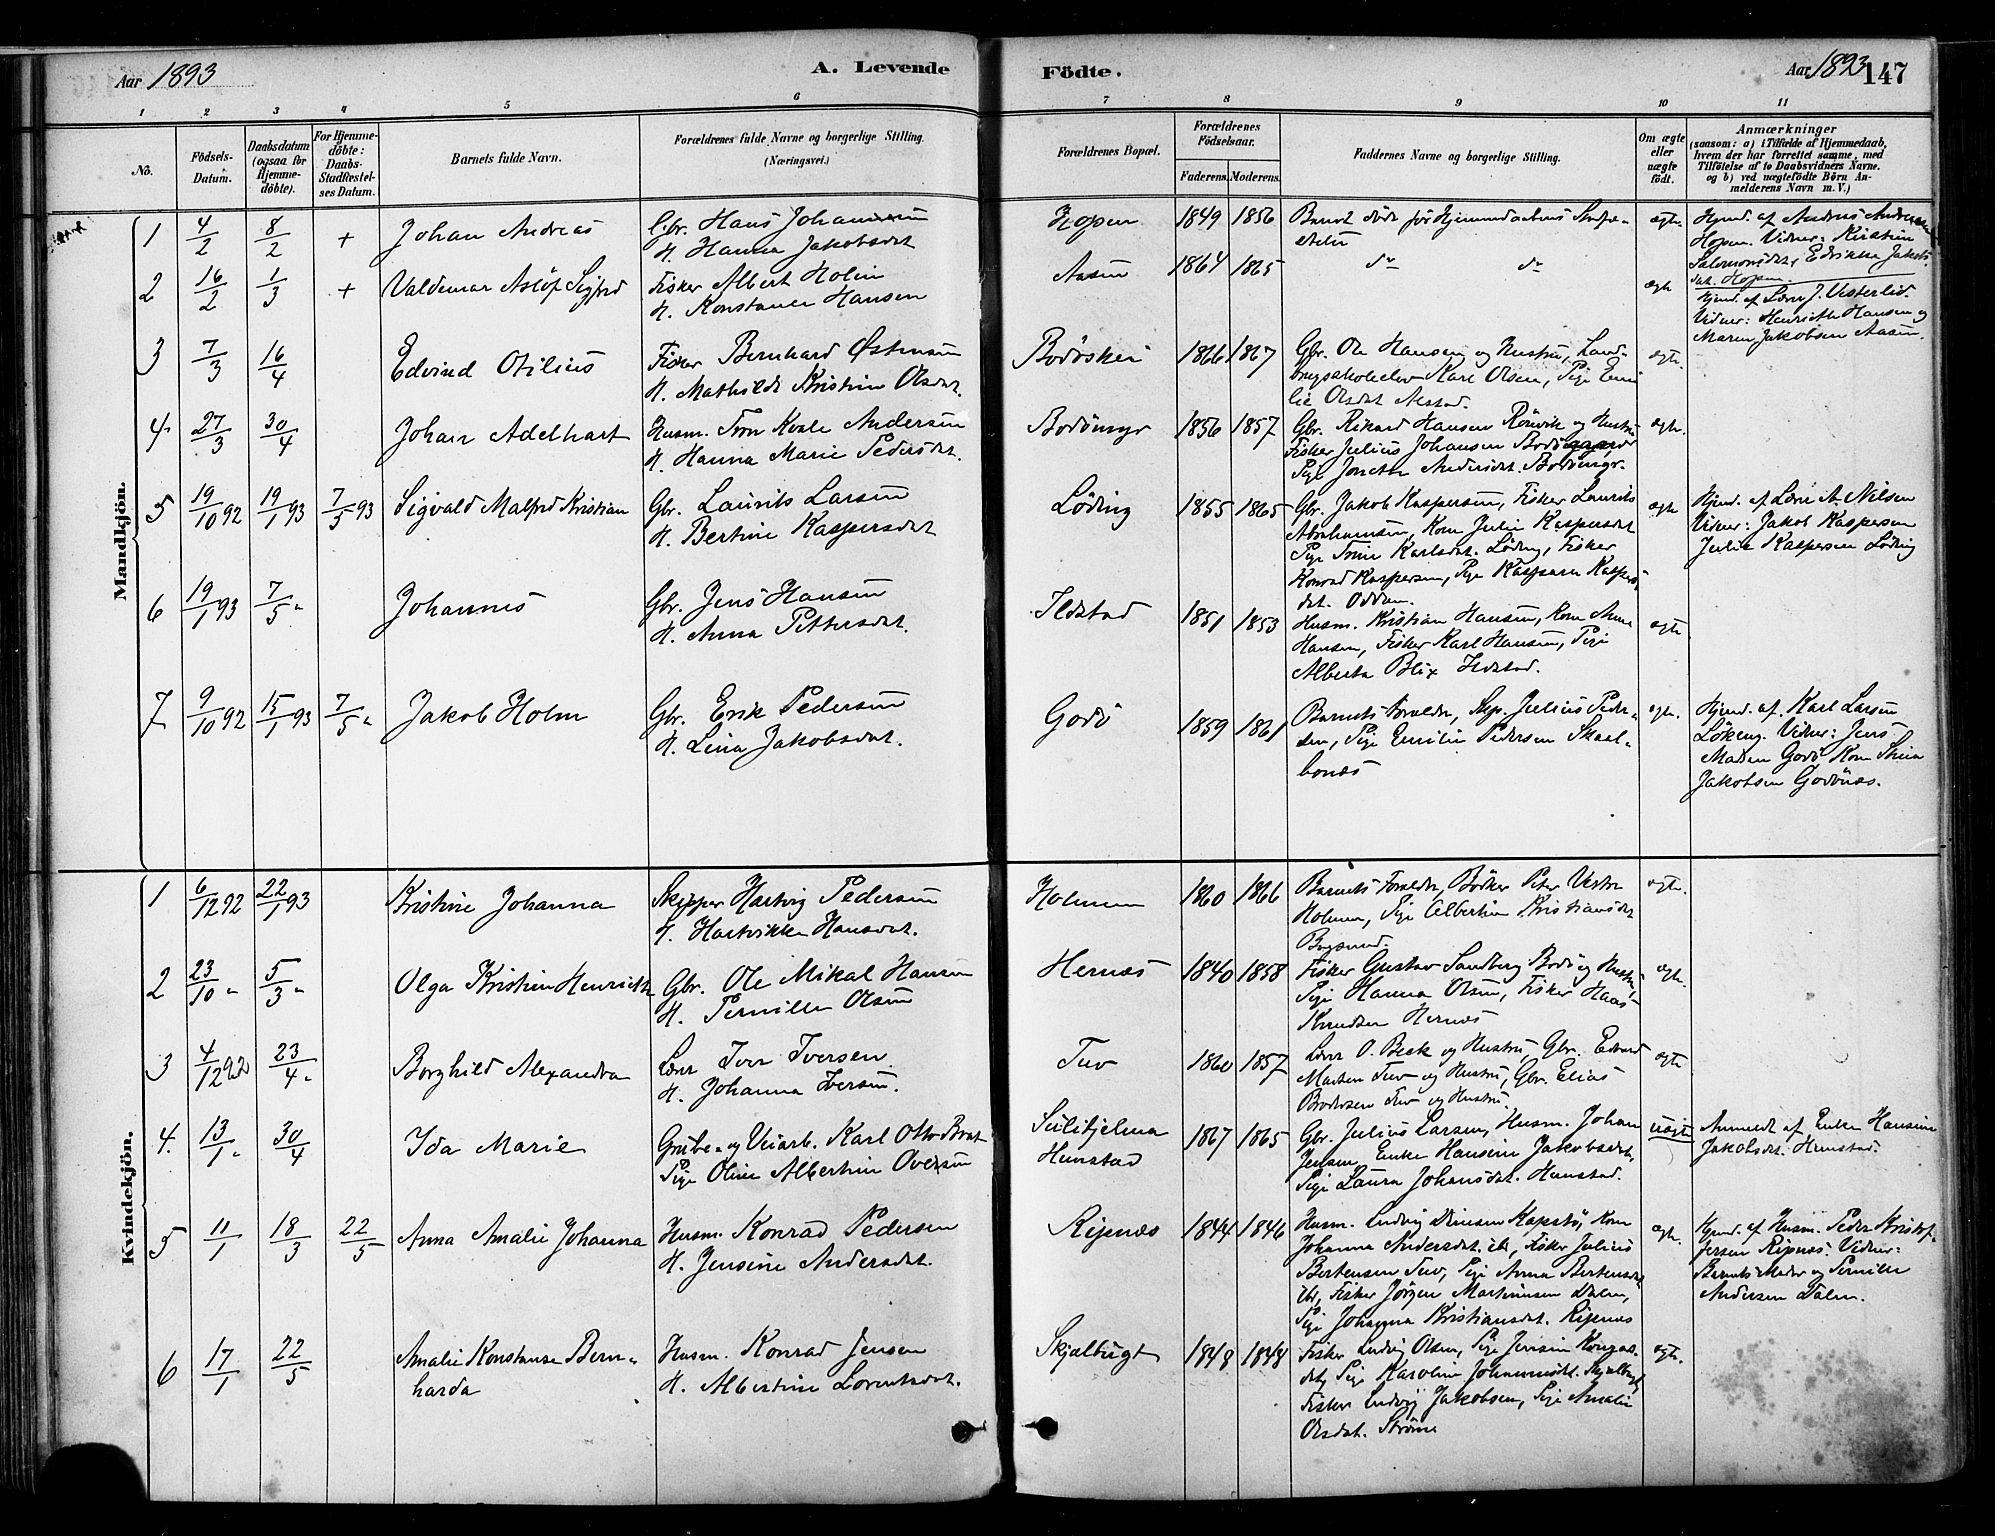 Aar 1893
A. Levende
Födte.
Aar 1893
147
1 2 3 4 5 6 7 8 9 10 11
No.
Födsels-
Datum.
Daabsdatum
(ogsaa for
Hjemme-
döbte).
For Hjemme-
döbte:
Daabs-
Stadfæstel-
ses Datum.
Barnets fulde Navn.
Forældrenes fulde Navne og borgerlige Stilling.
(Næringsvei.)
Forældrenes Bopæl.
Forældrenes
Födselsaar.
Faderens. Moderens.
Faddernes Navne og borgerlige Stilling.
Om ægte
eller
uægte
födt.
Anmærkninger
(saasom: a) i Tilfælde af Hjemmedaab,
hvem der har forrettet samme, med
Tilföielse af to Daabsvidners Navne.
og b) ved uægtefödte Börn An-
melderens Navn m. V.)
Mandkjön.
1 4/2 8/2 + Johan Andreas
Gbr. Hans Johannesen
H. Hanna Jakobsdat
Hopen 1849 1856
Barnet døde før Hjemmedaabens Stadfæ-
stelse
ægte.
Hjemd. af Anders Andersen
Hopen. Vidner: Kirstine
Salomonsdat, Edrikka Jakobs
dat. Hopen
2 16/2 1/3 + Valdemar Asløf Sigfred
Fisker Albert Holm
H. Konstance Hansen
Aasen 1864 1865 do do ægte
Hjemd. af Lærer J. Vesterlid.
Vidner: Henriette Hansen og
Maren Jakobsen Aasen
3 7/3 16/4 Edvind Otilius
Fisker Bernhard Østensen
H. Mathilde Kristine Olsdat.
Bodøsjøen 1866 1867
Gbr. Ole Hansen og Hustru, Land-
brugsskoleelev Karl Olsen, Pige Emi
lie Olsdat Alstad.
ægte.
4. 27/3 30/4 Johan Adelhart
Husm. Tron Kvale Andersen
H. Hanna Marie Pedersdat.
Bodöengr 1856 1857
Gbr. Rikard Hansen Rönvik og Hustru
Fisker Julius Johansen Bodögaard
Pige Jonetta Andersdat. Bodöengr.
ægte.
5 19/10 92 19/1 93 7/5 93 Sigvald Malfred Kristian
Gbr. Laurits Larsen
H. Bertine Kaspersdat
Löding 1855 1865
Gbr. Jakob Kaspersen, Fisker Laurits
Abrahamsen, Kone Julie Kaspersdat
Pige Trine Karlsdat. Löding, Fisker
Konrad Kaspersen, Pige Kaspara Kaspers-
dat. Oddan.
ægte
Hjemd. af Lærer A. Nilsen
Vidner: Jakob Kaspersen
Julie Kaspersen Löding
6 19/1 93 7/5 „ Johannes
Gbr. Jens Hansen
H. Anna Pettersdat.
Ildstad 1851 1853
Husm. Kristian Hansen, Kone Anne
Hansen, Fisker Karl Hansen, Pige
Alberta Blix Ildstad.
ægte
7 9/10 92 15/1 93 7/5 „ Jakob Holm
Gbr. Erik Pedersen
H. Lina Jakobsdat.
Godö 1859 1861
Barnets Forældre, Skp. Julius Peder-
sen, Pige Emilie Pedersen Skaal-
bones
ægte.
Hjemd. af. Karl Larsen
Lökeng. Vidner: Jens
Madsen Godö Kone Stina
Jakobsen Godönæs.
Kvindekjön.
1 6/12 92 22/1 93 Kristine Johanna
Skipper Hartvig Pedersen
H. Hartvikke Hansdat.
Holmen 1860 1866
Barnets Forældre, Bødker Peter Vestre
Holmen, Pige Albertine Kristiansdat
ægte.
2 23/10 „ 5/3 „ Olga Kristine Henriette
Gbr. Ole Mikal Hansen
H. Pernille Olsen
Hernæs 1840 1858
Fisker Gustav Sandberg Bodö og Hustru,
Pige Hanna Olsen, Fisker Hans
Knudsen Hernæs
ægte.
3 4/12 92 23/4 „ Borghild Alexandra
Lærer Iver Iversen
H. Johanna Iversen.
Tuv 1860 1857
Lærer O. Beck og Hustru, Gbr. Edvard
Madsen Tuv og Hustru, Gbr. Elias
Brodersen Tuv og Hustru,
ægte
4. 13/1 „ 30/4 Ida Marie
Grube- og Veiarb. Karl Otto Brat
Pige Oline Albertine Oversen
Sulitjelma
Hunstad
1867 1865
Gbr. Julius Larsen, Husm. Johan
Jensen, Enke Hansine Jakobsdat.
Pige Laura Johansdat. Hunstad.
uægte
Anmeldt af Enke Hansine
Jakobsdat. Hunstad.
5 11/1 18/3 22/5 Anna Amalie Johanna
Husm. Konrad Pedersen
H. Jensine Andersdat.
Ripnæs 1844 1846
Husm. Ludvig Densen Kapstö, Kone
Johanna Andersdat. ibi, Fisker Julius
Bertensen Tuv, Pige Anna Bertensdat
ibi, Fisker Jörgen Martinusen Dalen,
Pige Johanna Kristiansdat. Ripnæs
ægte.
Hjemd. af Husm. Peder Kristof-
fersen Ripnæs. Vidner:
Barnets Moder og Pernille
Andersen Dalen.
6 17/1 22/5 Amalie Konstanse Bern-
harda
Husm. Konrad Jensen
H. Albertine Lorentsdat.
Skjælbugt 1848 1848
Fisker Ludvig Olsen, Pige Jensine
Pige Karoline Johannesdt. Skjælbugt,
Fisker Ludvig Jakobsen, Pige Amalie
Olsdat. Ströme
ægte.